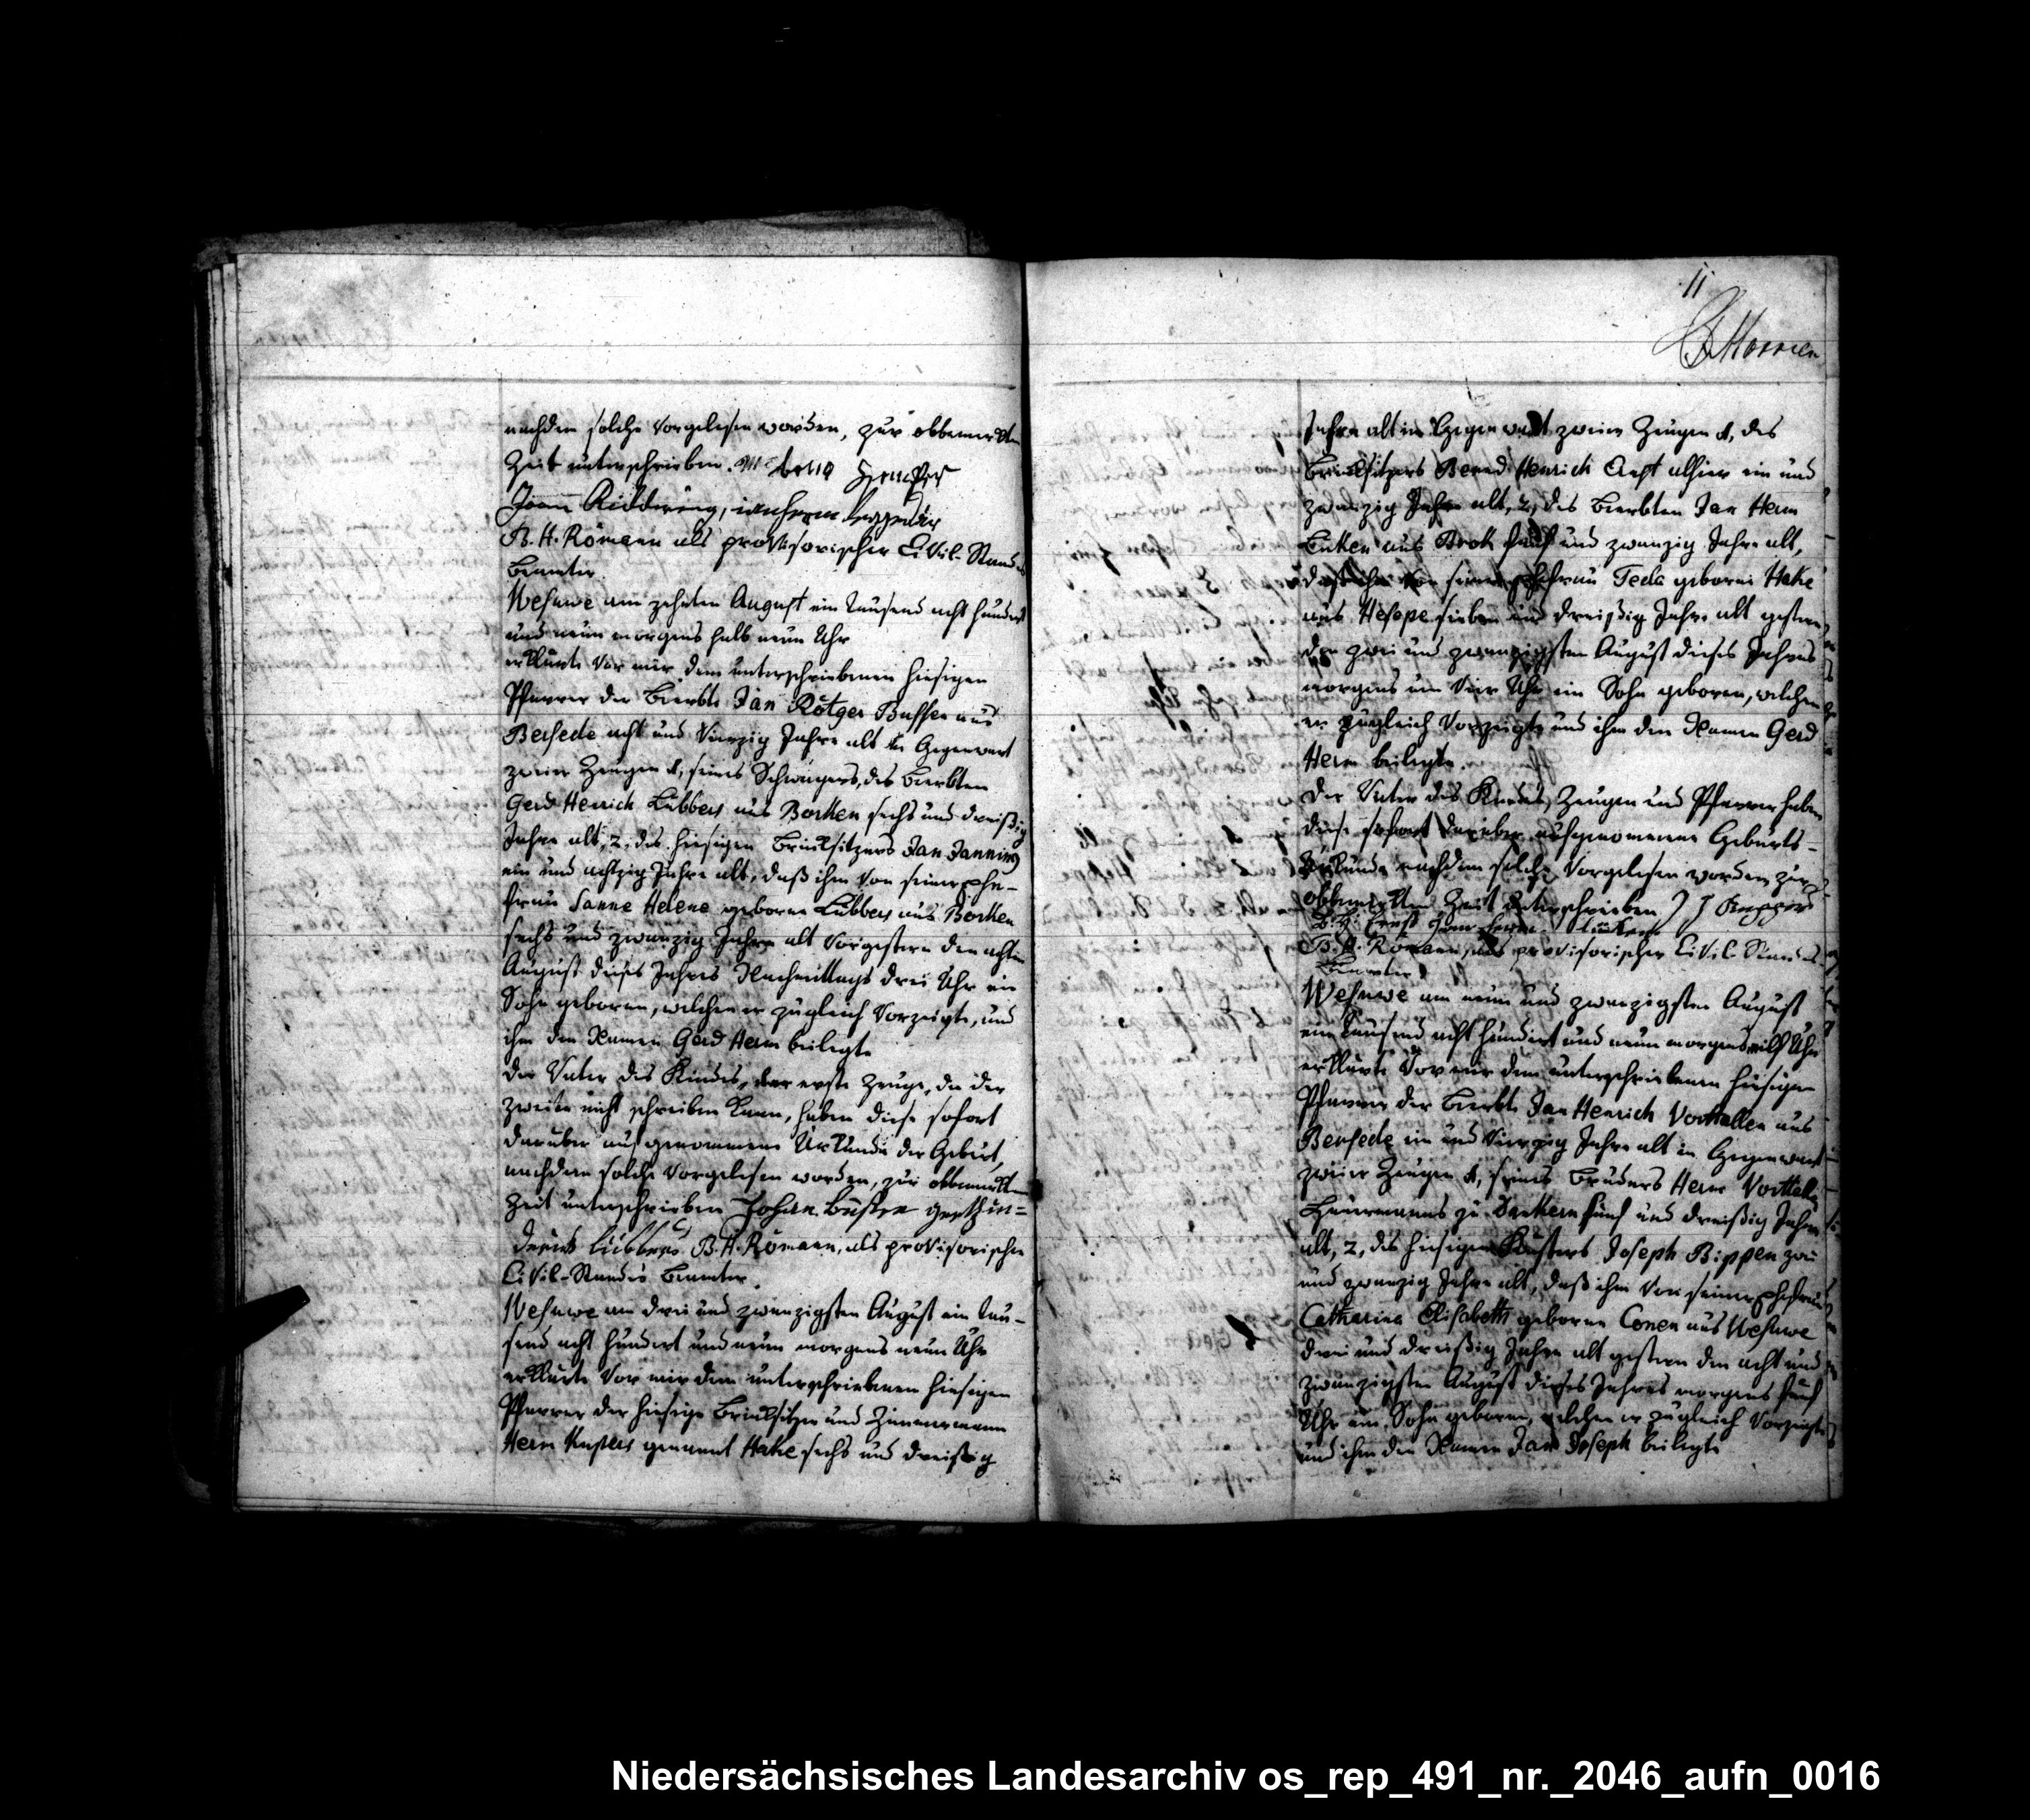 nachdem solche vorgelesen worden, zur obbemerkten
Zeit unterschrieben.
B. H. Römann als provisorischer Civil-Stands
Beamter.
Wesuwe am zehnten August ein tausend acht hundert
und neun morgens halb neun Uhr
erklärte vor mir dem unterschriebenen hiesigen
Pfarrer der Beerbte Jan Rötger Busse aus
Versede acht und vierzig Jahre alt in Gegenwart
zweier Zeugen 1, seines Schwagers, des Beerbten
Gerd Henrich Lübbers aus Borken sechs und dreißig
Jahre alt, 2, des hiesigen Brinksitzers Jan Janning
ein und achtzig Jahre alt, daß ihm von seiner Ehe-
frau Sanne Helene geborne Lübbers aus Borken
sechs und zwanzig Jahre alt vorgestern den achten
August dieses Jahres Nachmittags drei Uhr ein
Sohn geboren, welchen er zugleich vorzeigte, und
ihm den Namen Gerd Herm beilegte
der Vater des Kindes, der erste Zeuge, da der
zweite nicht schreiben kann, haben diese sofort
darüber aufgenommene Urkunde der Geburt,
nachdem solche vorgelesen worden, zur obbemerkten
Zeit unterschrieben Johan Büsse gerthin=
derick lübbers B. H. Römann, als provisorischer
Civil-Stands Beamter.
Wesuwe am drei und zwanzigsten August ein tau-
send acht hundert und neun morgens neun Uhr
erklärte vor mir dem unterschriebenen hiesigen
Pfarrer der hiesige Brinksitzer und Zimmermann
Herm genannt Hake sechs und dreißig
11
Jahre alt in Gegenwart zweier Zeugen 1, des
Brinksitzers Bernd Henrich alhier ein und
zwanzig Jahre alt, 2, des Beerbten Jan Herm
Lüken aus Brook fünf und zwanzig Jahre alt,
daß ihm von seiner Ehefrau Teda geborne Hake
aus Hesepe sieben und dreißig Jahre alt gestern
den zwei und zwanzigsten August dieses Jahres
morgens um vier Uhr ein Sohn geboren, welchen
er zugleich vorzeigte und ihm den Namen Gerd
Herm beilegte.
Der Vater des Kindes, Zeugen und Pfarrer haben
diese sofort darüber aufgenommene Geburts-
Urkunde nachdem solche vorgelesen worden zur
obbemerkten Zeit unterschrieben
B. H. Römann, als provisorischer Civil-Stands
Beamter
Wesuwe am neun und zwanzigsten August
ein tausend acht hundert und neun morgens eilf Uhr
erklärte vor mir dem unterschriebenen hiesigen
Pfarrer der Beerbte Jan Henrich Vortallen aus
Versede ein und vierzig Jahre alt in Gegenwart
zweier Zeugen 1, seines Bruders Herm
Heuermanns zu Dankern fünf und dreißig Jahre
alt, 2, des hiesigen Küsters Joseph Bippen zwei
und zwanzig Jahre alt, daß ihm von seiner Ehefrau
Catharina Elisabeth geborne Conen aus Wesuwe
drei und dreißig Jahre alt gestern den acht und
zwanzigsten August dieses Jahres morgens fünf
Uhr ein Sohn geboren, welchen er zugleich vorzeigte
und ihm den Namen Jan Joseph beilegte
Niedersächsisches Landesarchiv os_rep_491_nr._2046_aufn_0016